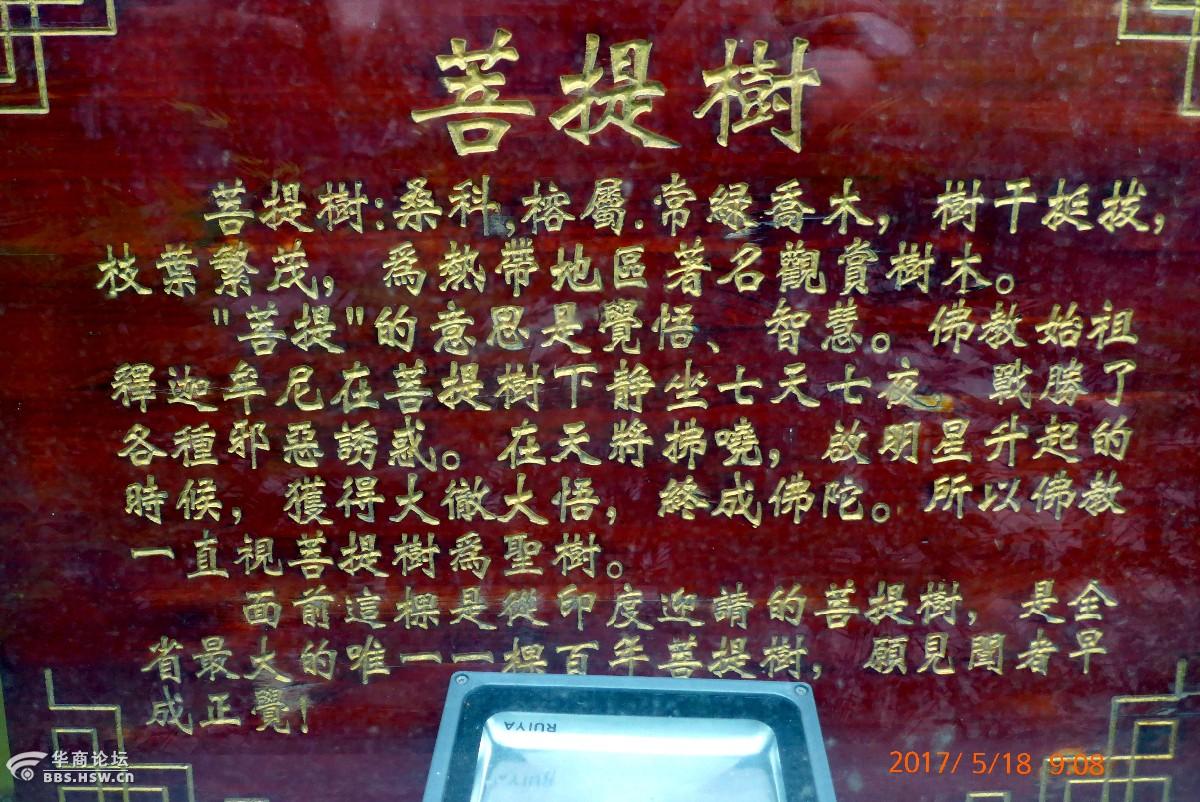 菩提樹
菩提樹:桑科,榕屬.常緑喬木，樹干挺拔，
枝葉繁茂，爲熱帶地區著名觀賞樹木。
"菩提"的意思是覺悟、智慧。佛教始祖
釋迦牟尼在菩提樹下静坐七天七夜，戰勝了
各種邪惡誘惑。在天將拂曉，啟明星升起的
時候，獲得大徹大悟，終成佛陀。所以佛教
一直視菩提樹爲聖樹。
面前這棵是從印度迎請的菩提樹，是全
省最大的唯一一棵百年菩提樹，願見聞者早
成正覺!
RUIYA
RUIYA
华商论坛
BBS.HSW.CN
2017/ 5/18 9:08